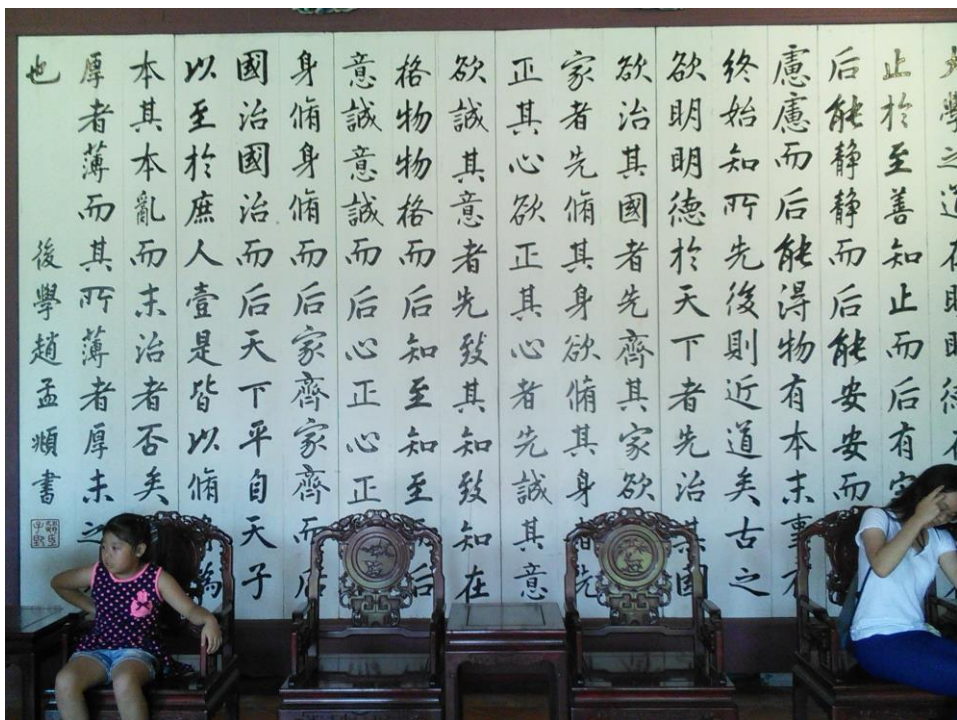 大學之道在明明德在
止於至善知止而后有定
后能静静而后能安安而
慮慮而后能得物有本末事有
終始知所先後則近道矣古之
欲明明德於天下者先治其國
欲治其國者先齊其家欲
家者先脩其身欲脩其身者先
正其心欲正其心者先誠其意
欲誠其意者先致其知致知在
格物物格而后知至知至而后
意誠意誠而后心正心正
身脩身脩而后家齊家齊而后
國治國治而后天下平自天子
以至於庶人壹是皆以脩身為
本其本亂而末治者否矣
厚者薄而其所薄者厚未之
也
後學趙孟頫書